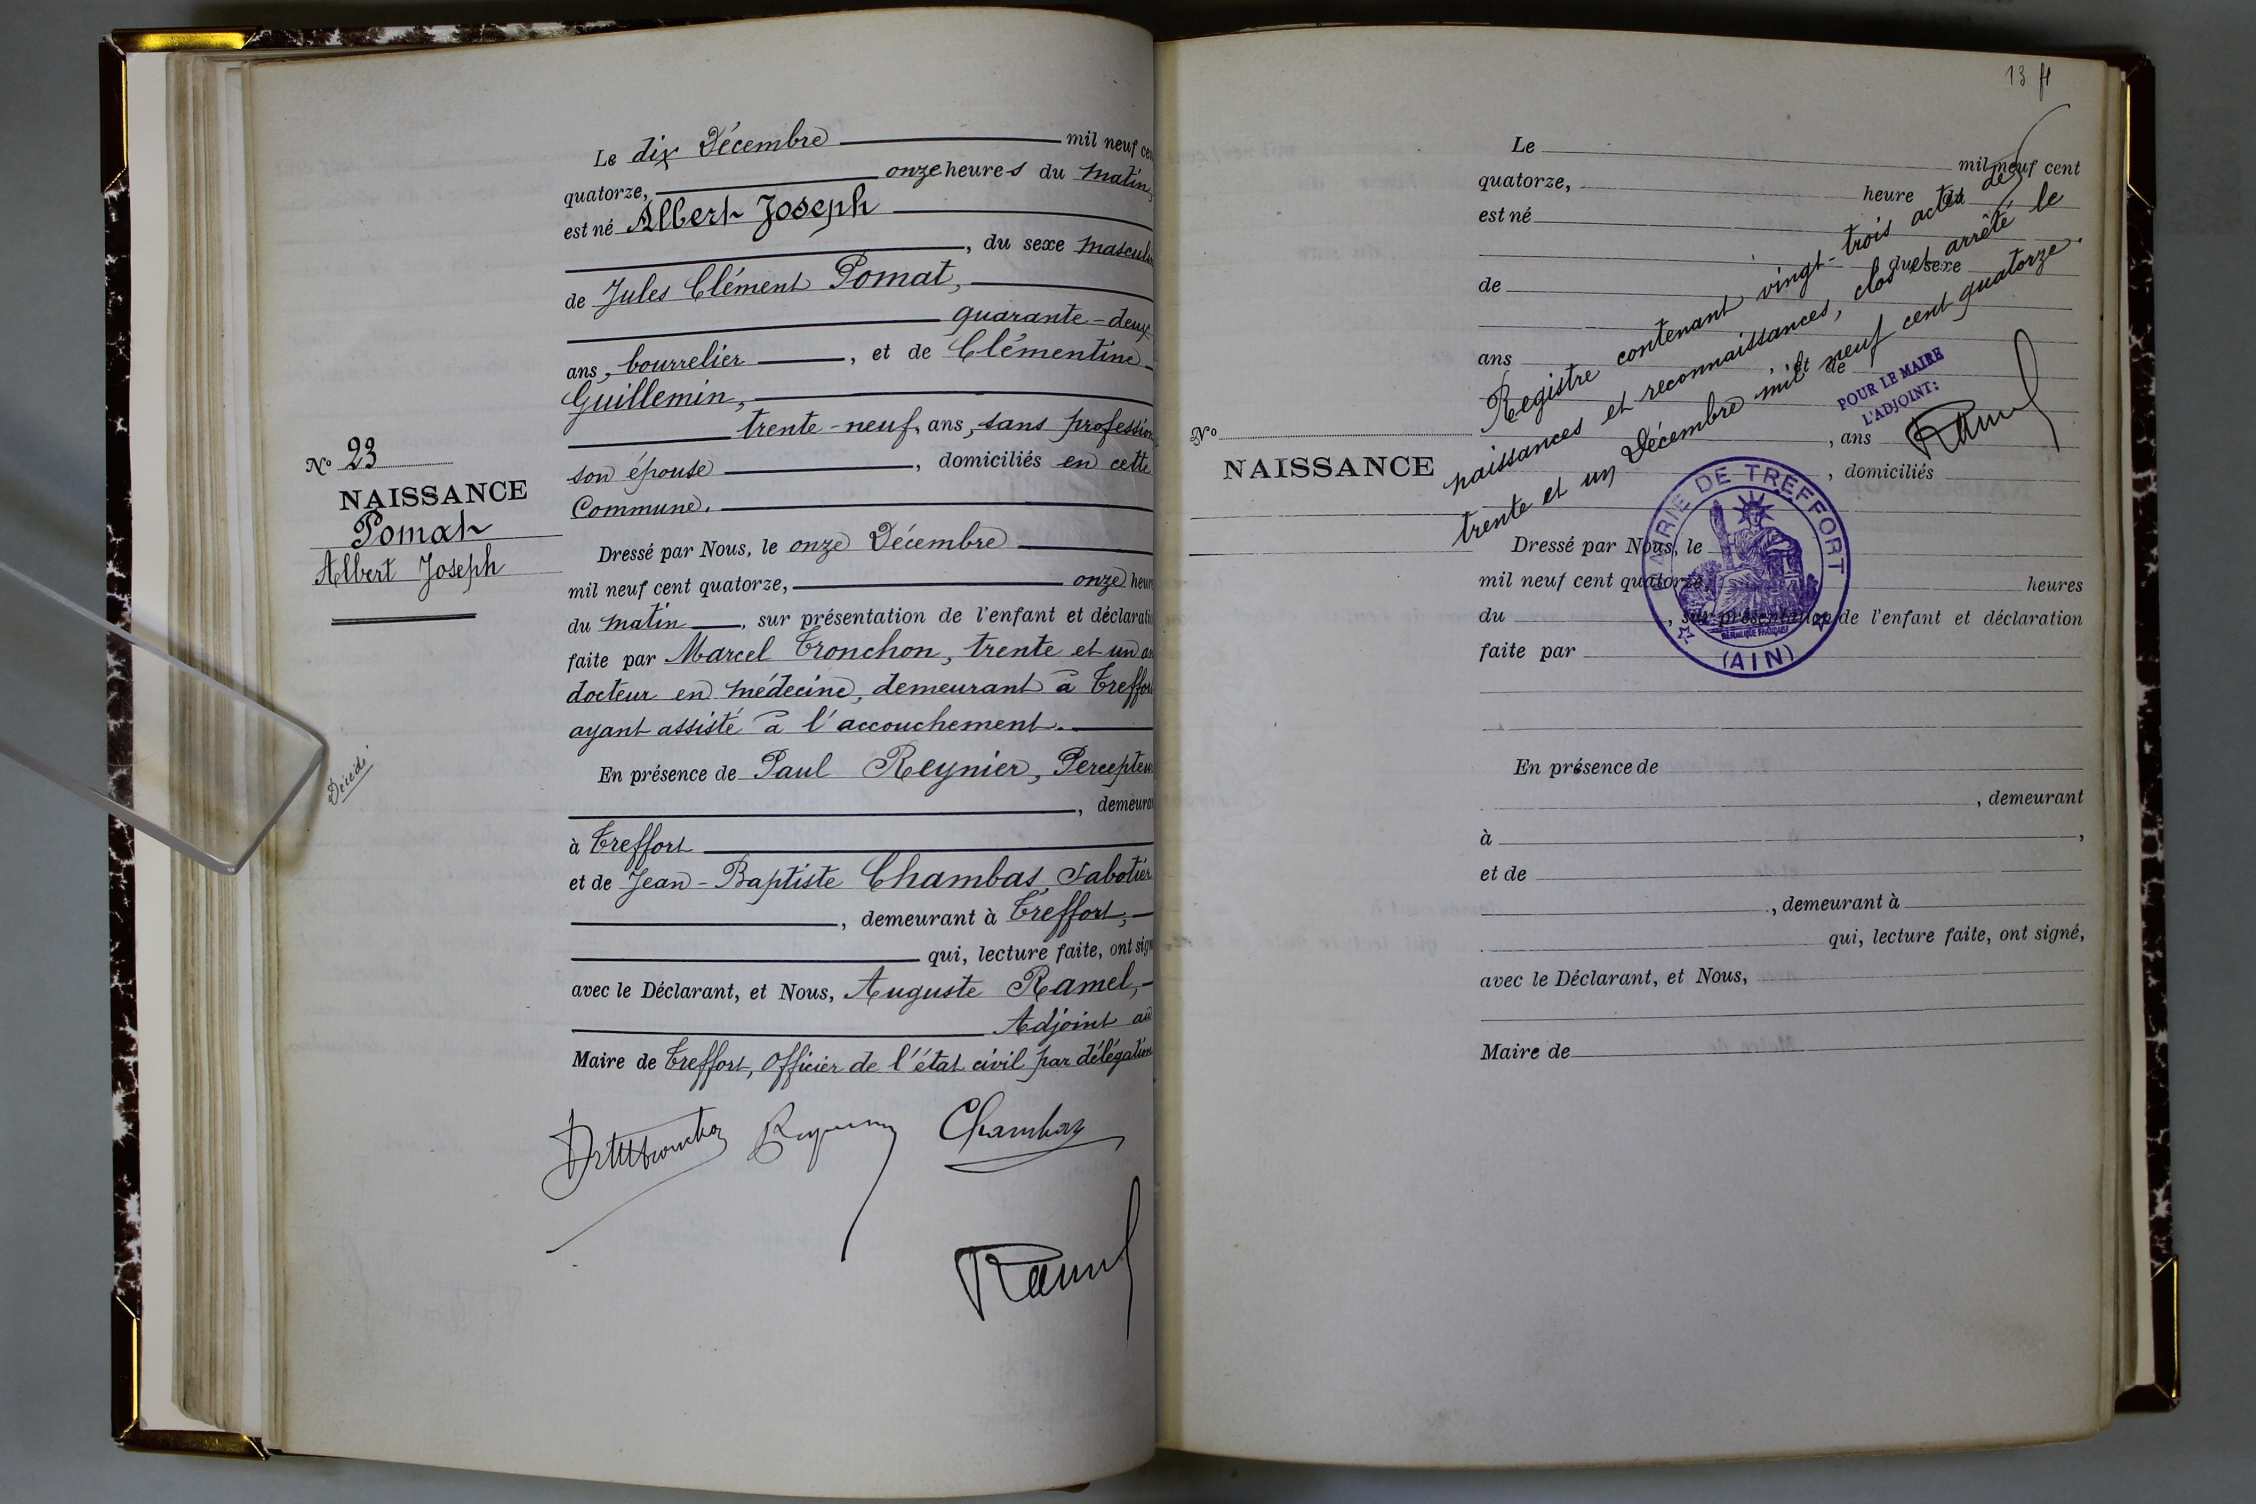 Le dix Décembre mil neuf cen
quatorze, onze heures du matin,
est né Albert Joseph
, du sexe masculin
de Jules Clément Pomat,
quarante-deux
ans, bourrelier , et de Clémentine
Guillemin,
trente-neuf, ans, sans profession
son épouse , domiciliés en cette
Commune.
Nº 23
NAISSANCE
Pomat
Albert Joseph
Dressé par Nous, le onze Décembre
mil neuf cent quatorze, onze heure
du matin , sur présentation de l'enfant et déclaratio
faite par Marcel Tronchon, trente et un an
docteur en médecine, demeurant à Treffort
ayant assisté à l'accouchement.
Décédé
En présence de Paul Reynier, Percepteur
, demeuran
à Treffort
et de Jean-Baptiste Chambas, Sabotier
, demeurant à Treffort,
qui, lecture faite, ont sign
avec le Déclarant, et Nous, Auguste Ramel,
Adjoint au
Maire de Treffort, Officier de l'état civil par délégation
Chambas
Ramel
13
Le mil neuf cent
quatorze, heure du
est né
du sexe
de
ans et de
Nº
NAISSANCE
, ans
, domiciliés
Registre contenant vingt-trois actes de
naissances et reconnaissances, clos et arrêté le
trente et un Décembre mil neuf cent quatorze.
POUR LE MAIRE
L'ADJOINT:
Ramel
MAIRIE DE TREFFORT
RÉPUBLIQUE FRANÇAISE
(AIN)
Dressé par Nous, le
mil neuf cent quatorze, heures
du , sur présentation de l'enfant et déclaration
faite par
En présence de
, demeurant
à ,
et de
, demeurant à
qui, lecture faite, ont signé,
avec le Déclarant, et Nous,
Maire de